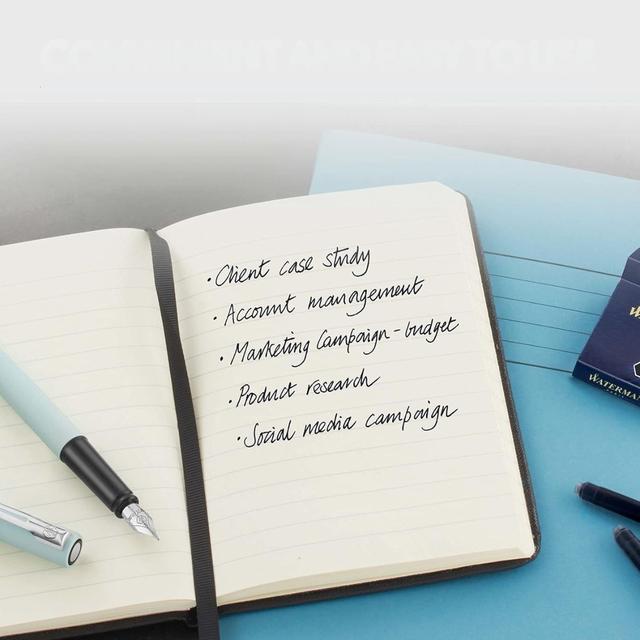 • Client case study
• Account management
• Marketing Campaign - budget
• Product research
• Social media campaign
WATERMAN